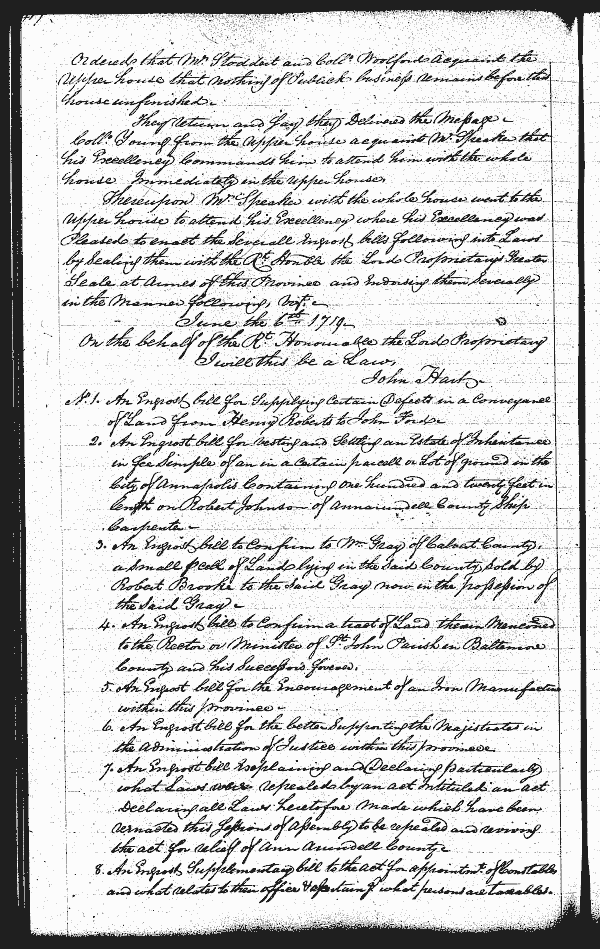 Ordered that Mr. Stoddert and Coll. Woolford acquaint the
Upper house that nothing of Publick business remains before this
house unfinished.
They return and say they Delivered the Message
Coll. Young from the Upper house acquaint Mr. Speaker that
his Excellency Commands him to attend him with the whole
house Immediately in the Upper house.
Thereupon Mr. Speaker with the whole house went to the
Upper house to attend his Excellency where his Excellency was
Pleased to enact the Severall Engrost bills following into Laws
by Sealing them with the Rt. Honble the Lord Proprietarys Greater
Seale at Armes of this Province and Endorsing them Severally
in the Manner following, Vizt.
June the 6th 1719
On the behalf of the Rt. Honourable the Lord Proprietary
I will this be a Law.
John Hart
No. 1. An Engrost bill for Supplying Certain Defects in a Conveyance
of Land from Henry Roberts to John Ford
2. An Engrost bill for vesting and Settling an Estate of Inheritance
in fee Simple of an in a Certain parcell or Lot of ground in the
City of Annapolis Containing one hundred and twenty feet in
length on Robert Johnson of Annarundell County Ship
Carpenter
3. An Engrost bill to Confirm to Wm. Gray of Calvert County,
a small pcell of Land lying in the Said County, sold by
Robert Brooke to the said Gray now in the possession of
the said Gray
4. An Engrost bill to Confirm a tract of Land therein Menconed
to the Rector or Minister of St. John Parish in Baltemore
County and his Successors forever.
5. An Engrost bill for the Encouragement of an Iron Manufacture
within this province
6. An Engrost bill for the better Supporting the Majistrates in
the Administration of Justice within this province
7. An Engrost bill Explaining and Declaring particularly
what Laws were repealed by an act Intituled an act
Declaring all Laws heretofore made which have been
reenacted this Sessions of Assembly to be repealed and reviving
the act for relief of Ann Arundell County
8. An Engrost Supplementary bill to the act for appointmt. of Constables
and what relates to their office & ascertaing what persons are taxables.